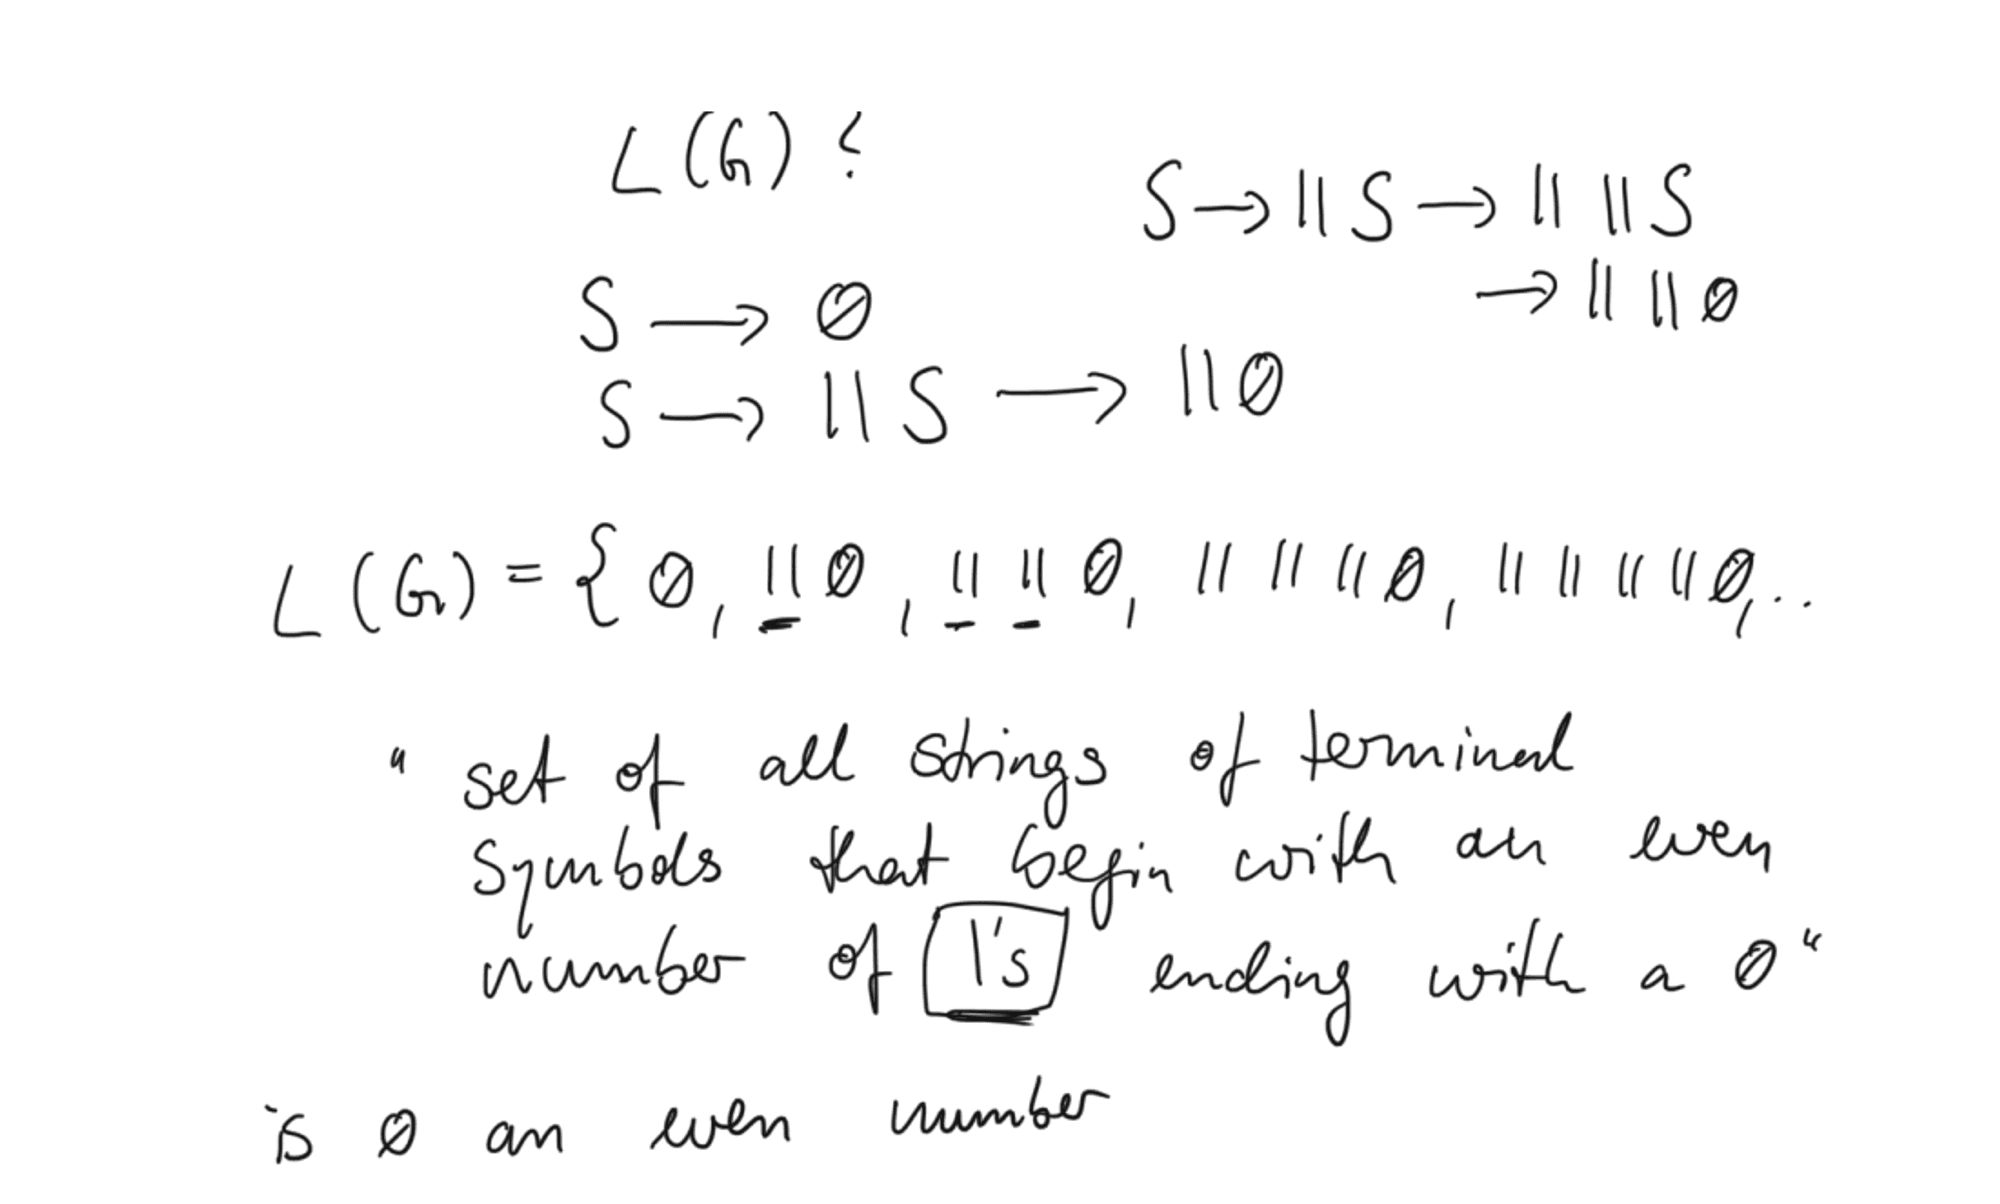 L(G)?
S → 11S → 11 11S
→ 11 110
S → 0
S → 11S → 110
L(G) = { 0, 110, 11 110, 11 11 110, 11 11 11 110, ..
"set of all strings of terminal
symbols that begin with an even
number of 1's ending with a 0"
is 0 an even number